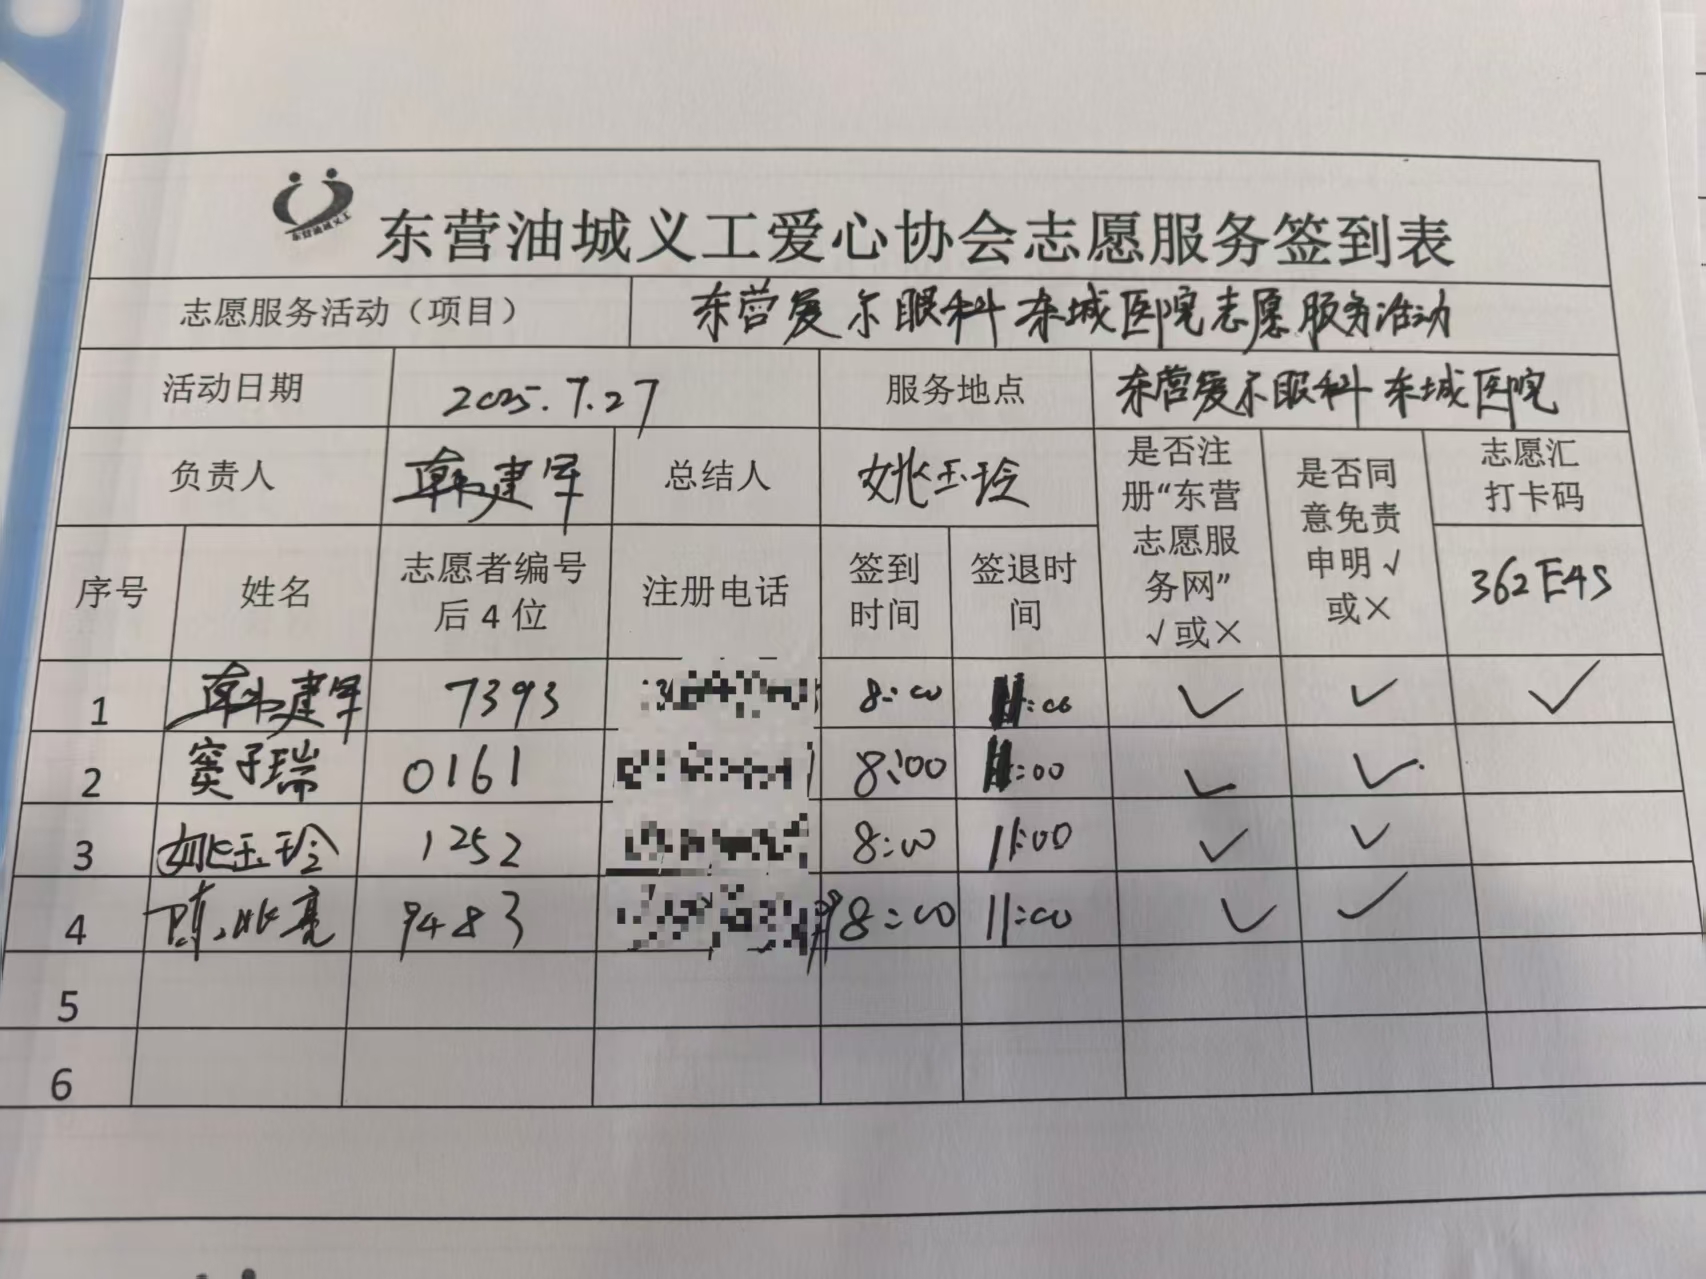 东营油城义工
东营油城义工爱心协会志愿服务签到表
志愿服务活动（项目） 东营爱尔眼科东城医院志愿服务活动
活动日期 2025.7.27 服务地点 东营爱尔眼科东城医院
负责人 韩建军 总结人 姚玉玲
是否注册“东营志愿服务网”√或×
是否同意免责申明√或×
志愿汇打卡码
序号 姓名 志愿者编号后4位 注册电话 签到时间 签退时间 362E4S
1 韩建军 7393 8:00 11:00 √ √ √
2 窦子瑞 0161 8:00 11:00 √ √
3 姚玉玲 1252 8:00 11:00 √ √
4 亮 9483 8:00 11:00 √ √
5
6